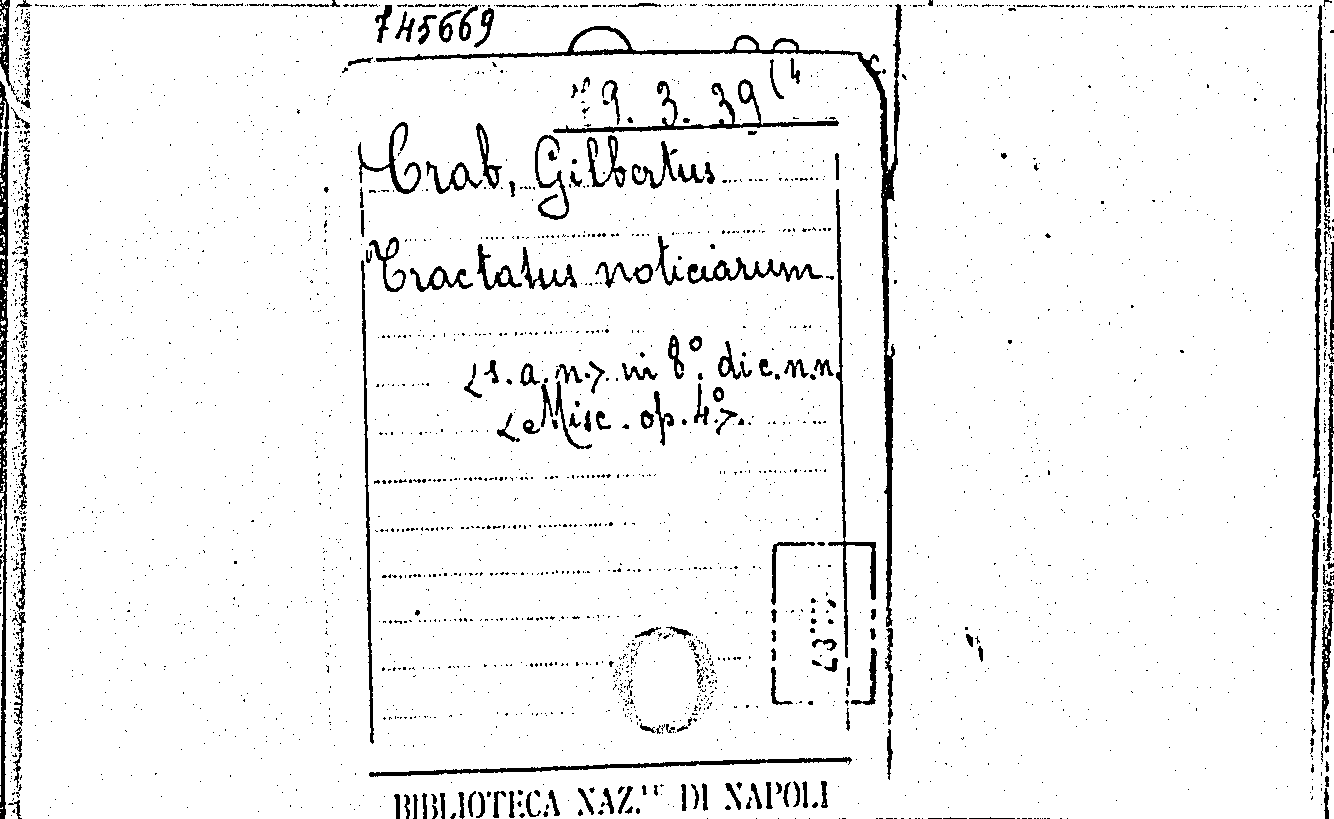 745669
19. 3. 39 (4
Crab, Gilbertus
Tractatus noticiarum
<s. a. n.> in 8°. di c. n.n.
<Misc. op. 4°>.
BIBLIOTECA NAZ.LE DI NAPOLI